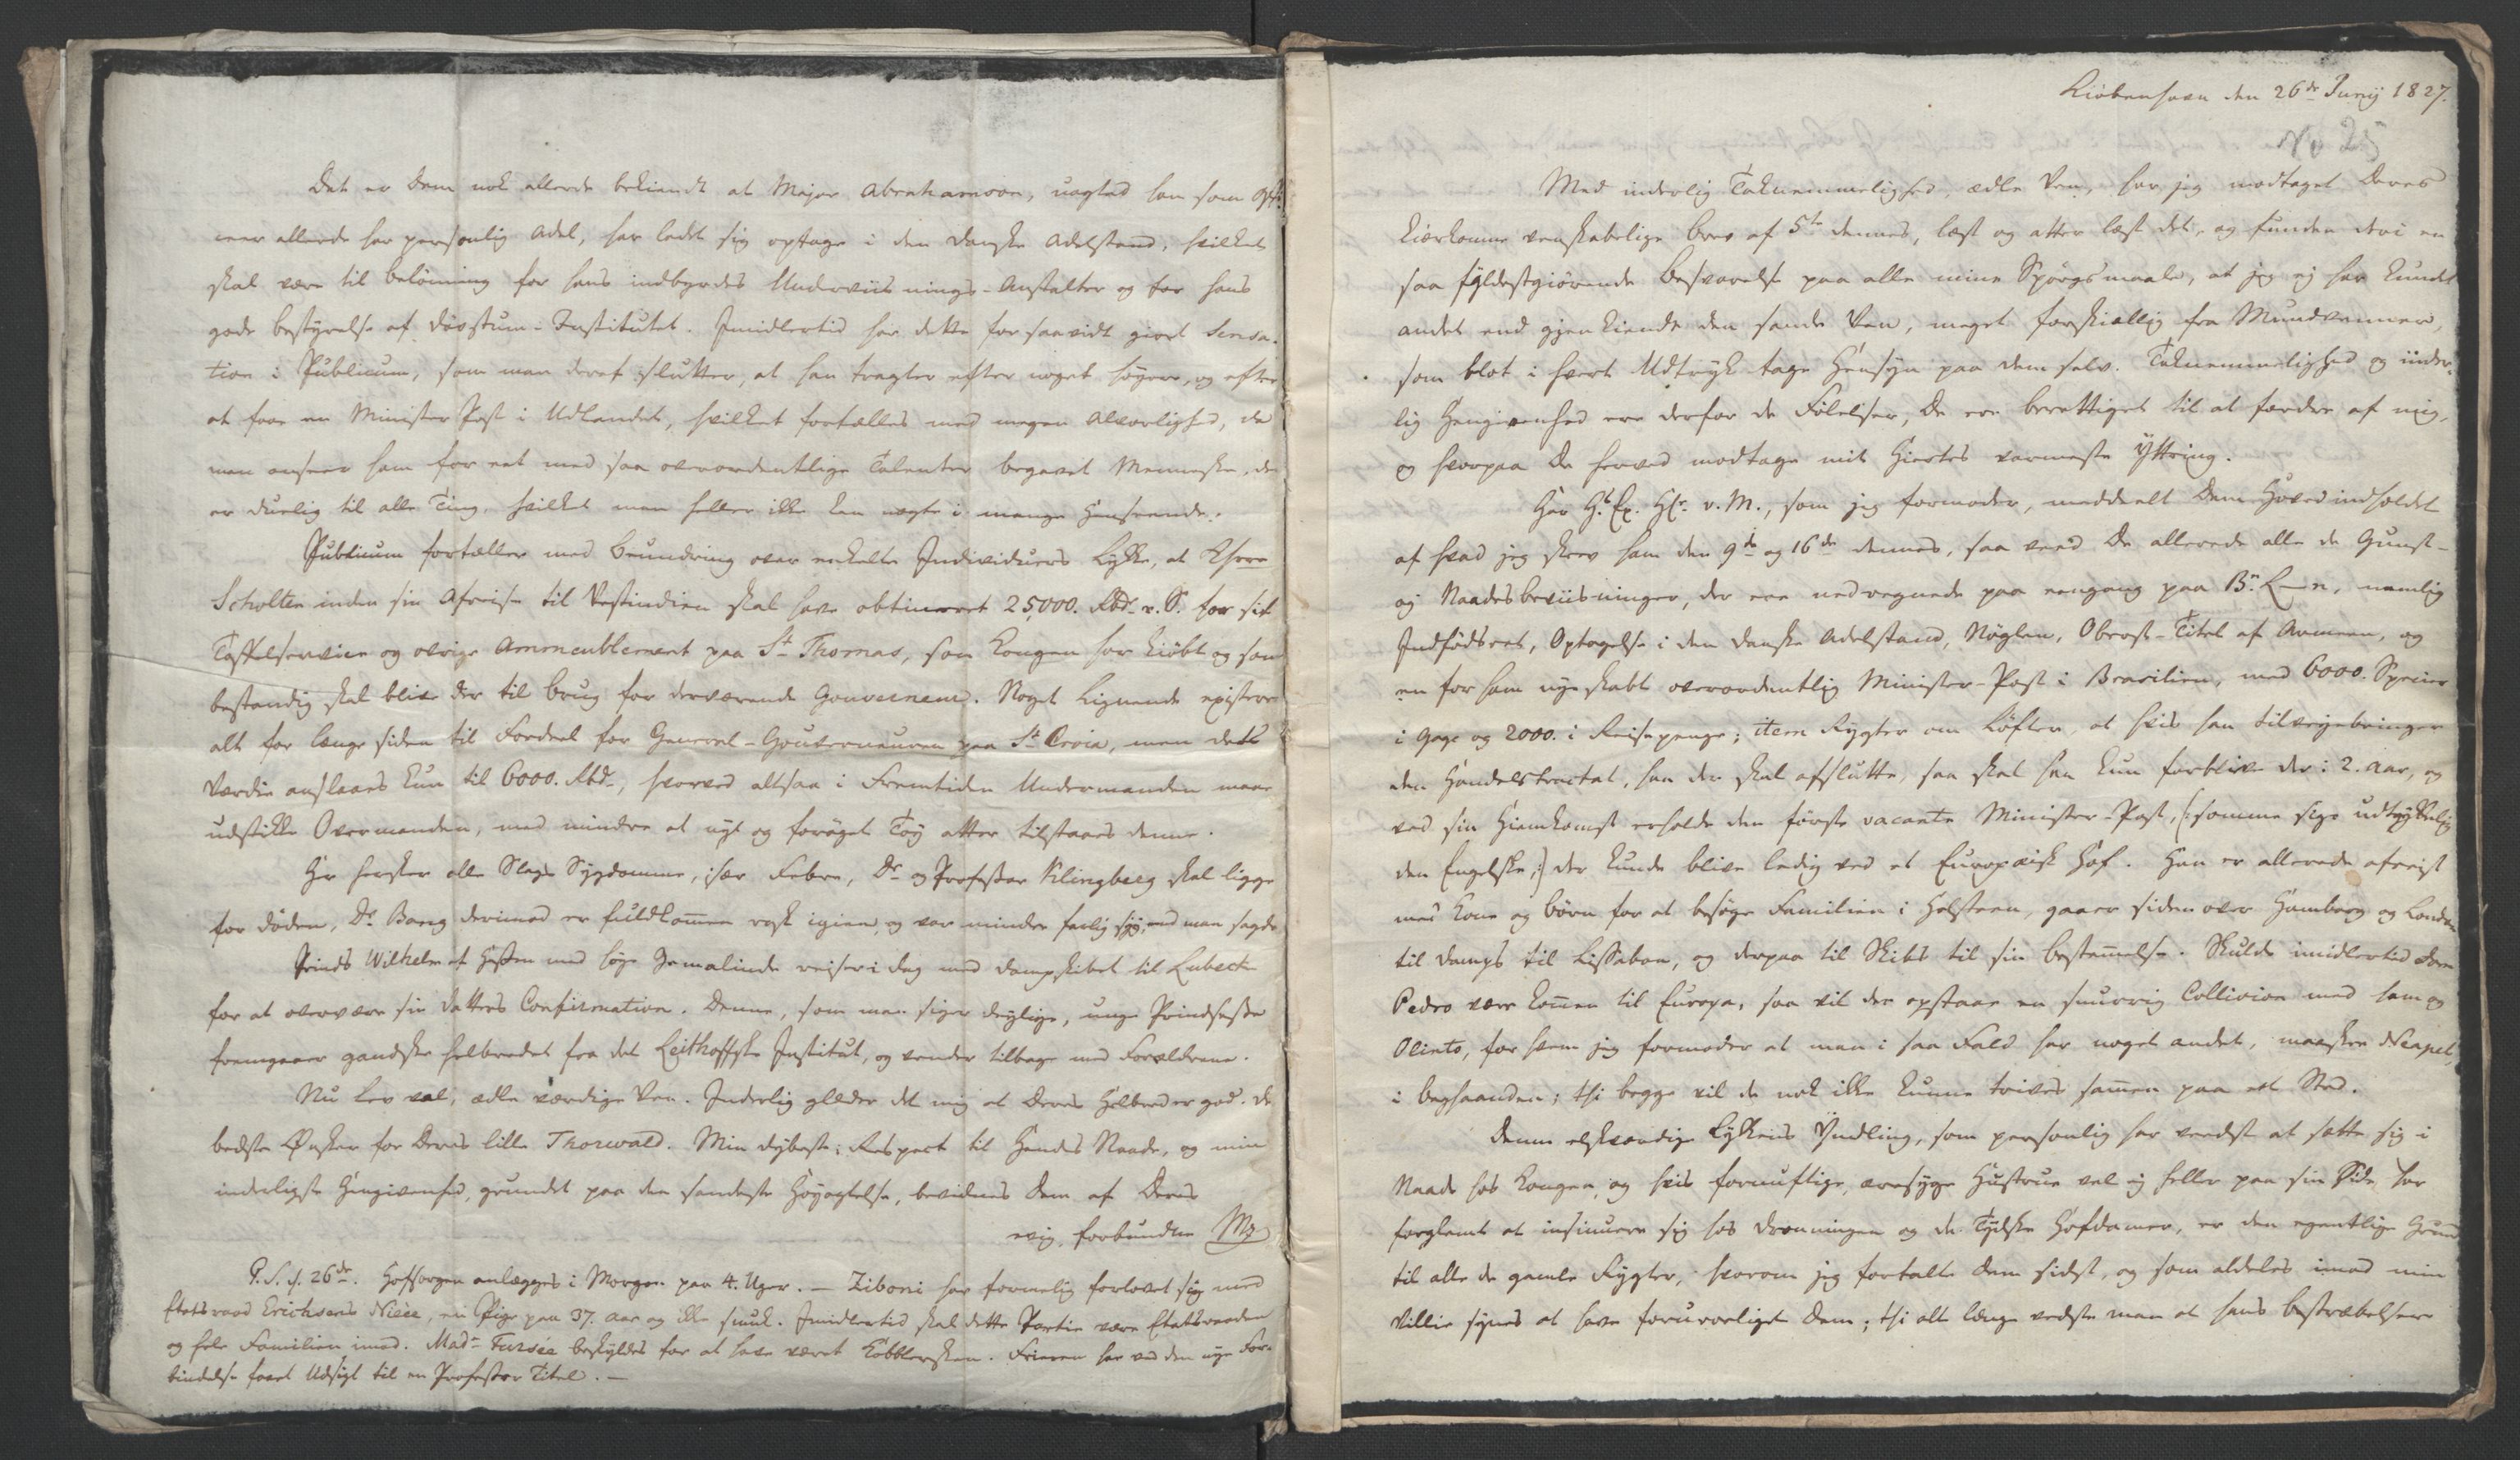 Det er Dem nok allerede bekiendt at Major Abrahamson, uagtet han som Offi-
ceer allerede har personlig Adel, har ladet sig optage i den danske Adelstand, hvilket
skal være til belönning for hans indbyrdes Underviisnings-Anstalter og for hans
gode bestyrelse af Dövstum-Institutet. Imidlertid har dette forsaavidt giort Sensa-
tion i Publicum, som man deraf slutter, at han tragter efter noget höyere, og efter
at faae en Minister Post i Udlandet, hvilket fortælles med megen Alvorlighed, da
man anseer ham for eet med saa overordentlige Talenter begavet Menneske, der
er duelig til alle Ting, hvilket man heller ikke kan nægte i mange Henseende.
Publicum fortæller med beundring over enkelte Individuers Lykke, at Etsrr
Scholten inden sin Afreise til Vestindien skal have obtineret 25,000. Rbdr. r. S. for sit
Taffelservice og övrige Ammeublement paa St Thomas, som Kongen har kiöbt og som
bestandig skal blive der til brug for derværende Gouverneur. Noget Lignende existerer
alt for længe siden til Fordeel for General-Gouverneuren paa St Croix, men dets
Værdie anslaaes kun til 6000. Rbdr, hvorved altsaa i Fremtiden Undermanden maae
udstikke Overmanden, med mindre et nyt og foröget Töy atter tilstaaes denne.
Her hersker alle Slags Sygdomme, især Febre, Dr og Professor Klingberg skal ligge
for Döden, Dr Bang derimod er fuldkommen rask igien, og var mindre farlig syg, end man sagde.
Prinds Wilhelm af Hessen med höye Gemalinde reiser i dag med Dampskibet til Lubeck
for at overvære sin Datters Confirmation. Denne, som man siger deylige, unge Prindsesse
fremgaaer gandske helbredet fra det Leithoffske Institut, og vender tilbage med Forældrene.
Nu lev vel, ædle værdige Ven. Inderlig glæder det mig at Deres Helbred er god. De
bedste Önsker for Deres lille Thorwald. Min dybeste Respect til Hendes Naade, og min
inderligste Hengivenhed, grundet paa den sandeste Höyagtelse, bevidnes Dem af Deres
evig forbundne Mz
P.S. d. 26de. Hofsorgen anlægges i Morgen paa 4. Uger. — Ziboni har formelig forlovet sig med
Etatsraad Erichsens Niéce, en Pige paa 37. Aar og ikke smuk. Imidlertid skal dette Partie være Etatsraaden
og hele Familien imod. Made Fursée beskyldes for at have været Koblersken. Frieren har ved den nye For-
bindelse faaet Udsigt til en Professor Titel. —
Kiöbenhavn den 26de Junij 1827.
Med inderlig Taknemmelighed, ædle Ven, har jeg modtaget Deres
kiærkomne venskabelige brev af 5te dennes, læst og atter læst det, og funden deri en
saa fyldestgiörende besvarelse paa alle mine Spörgsmaale, at jeg ej har kundet
andet end gjenkiende den sande Ven, meget forskiællig fra Mundvenner,
som blot i hvert Udtryk tage Hensyn paa dem selv. Taknemmelighed og inder-
lig Hengivenhed ere derfor de Fölelser, De ere berettiget til at fordre af mig,
og hvorpaa De herved modtage mit Hiertes varmeste Yttring.
Har H. Ex. Hr. v. M., som jeg formoder, meddeelt Dem Hovedindholdet
af hvad jeg skrev ham den 9de og 16de dennes, saa veed De allerede alle de Gunst-
og Naadesbeviisninger, der ere nedregnede paa eengang paa Bn L—n, nemlig
Indfödsret, Optagelse i den danske Adelstand, Nöglen, Oberst-Titel af Armeen, og
en for ham nye skabt overordentlig Minister-Post i Brasilien, med 6000. Specier
i Gage og 2000. i Reisepenge; item Rygter om Löfter, at hvis han tilveyebringer
den Handelstractat, han der skal afslutte, saa skal han kun forblive der i 2. Aar, og
ved sin Hiemkomst erholde den förste vacante Minister-Post, (: somme sige udtrykkelig
den Engelske,:) der kunde blive ledig ved et Europæisk Hof. Han er allerede afreist
med Kone og börn for at besöge Familien i Holsteen, gaaer siden over Hamborg og London
til damps til Lissabon, og derpaa til Skibs til sin bestemmelse. Skulde imidlertid Dom
Pedro være kommen til Europa, saa vil der opstaae en snurrig Collision med ham og
Olinto, for hvem jeg formoder at man i saa Fald har noget andet, maaskee Neapel,
i baghaanden; thi begge vil de nok ikke kunne trives sammen paa eet Sted.
Denne elskværdige Lykkens Yndling, som personlig har vendst at sætte sig i
Naade hos Kongen, og hvis fornuftige, æresyge Hustrue vel ej heller paa sin Side har
forglemt at insinuere sig hos Dronningen og de Tydske Hofdamer, er den egentlige Grund
til alle de gamle Rygter, hvorom jeg fortalte Dem sidst, og som aldeles imod min
Villie synes at have foruroeliget Dem; thi alt længe vidste man at hans bestræbelser